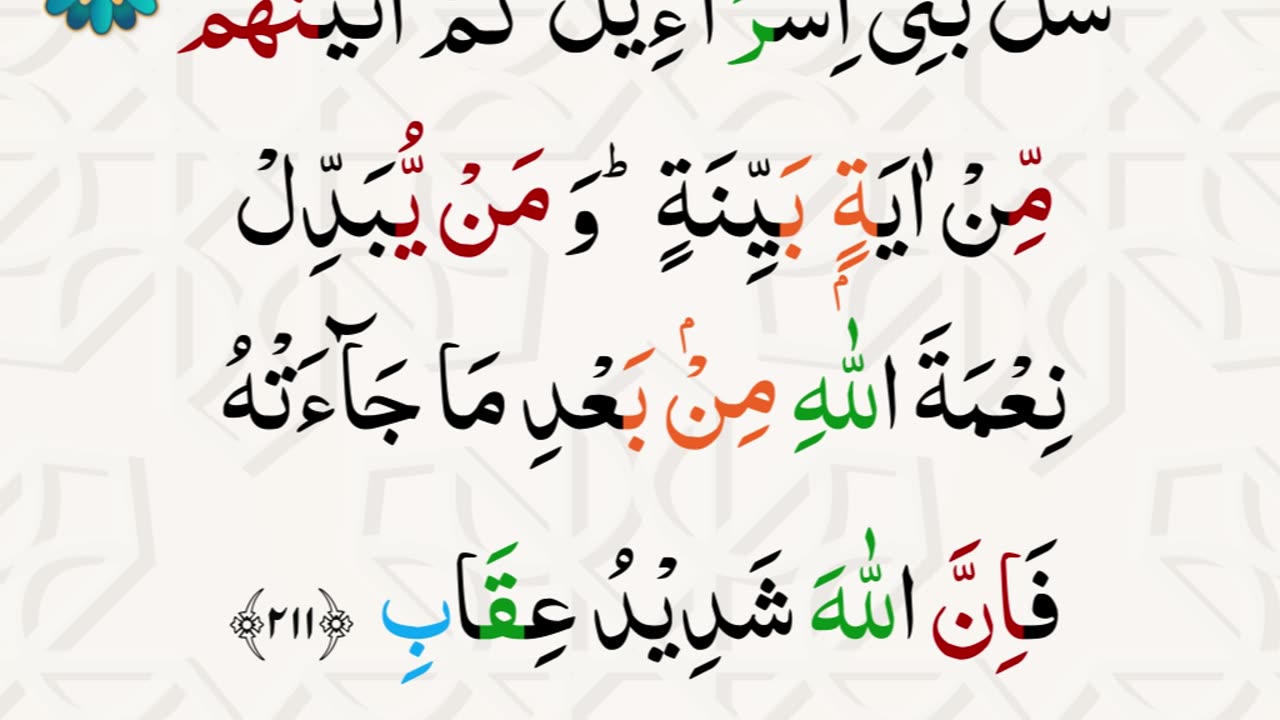 سَلْ بَنِیْٓ اِسْرَآءِیْلَ كَمْ اٰتَیْنٰهُمْ
مِّنْ اٰیَةٍۭ بَیِّنَةٍ ؕ وَ مَنْ یُّبَدِّلْ
نِعْمَةَ اللّٰهِ مِنْۢ بَعْدِ مَا جَآءَتْهُ
فَاِنَّ اللّٰهَ شَدِیْدُ عِقَابِ ﴿۲۱۱﴾